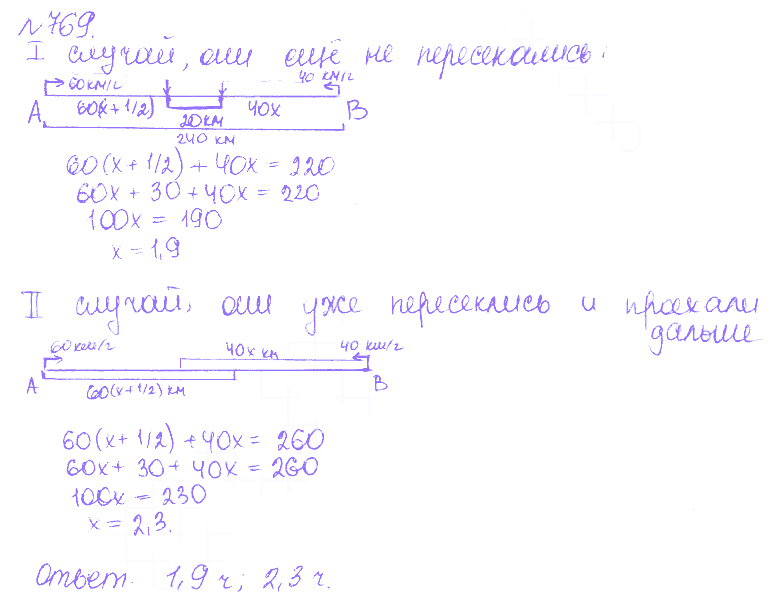 №769.
I случай, они ещё не пересекались.
60км/ч 40 км/ч
A 60(x+1/2) 40x B
20км
240 км
60(x+1/2)+40x=220
60x+30+40x=220
100x=190
x=1,9
II случай, они уже пересеклись и проехали
дальше
60км/ч 40x км 40 км/ч
A 60(x+1/2) км B
60(x+1/2)+40x=260
60x+30+40x=260
100x=230
x=2,3.
Ответ. 1,9 ч; 2,3 ч.